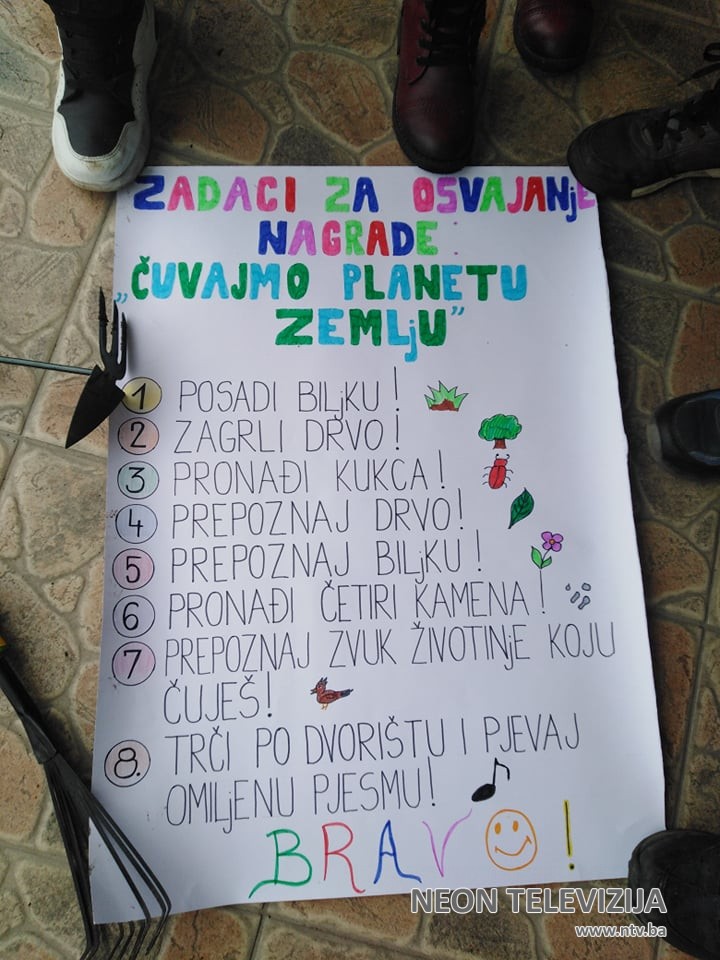 ZADACI ZA OSVAJANjE
NAGRADE
„ČUVAJMO PLANETU
ZEMLjU”
1 POSADI BILjKU!
2 ZAGRLI DRVO!
3 PRONAĐI KUKCA!
4 PREPOZNAJ DRVO!
5 PREPOZNAJ BILjKU!
6 PRONAĐI ČETIRI KAMENA!
7 PREPOZNAJ ZVUK ŽIVOTINjE KOJU
ČUJEŠ!
8. TRČI PO DVORIŠTU I PJEVAJ
OMILjENU PJESMU!
BRAVO!
NEON TELEVIZIJA
www.ntv.ba